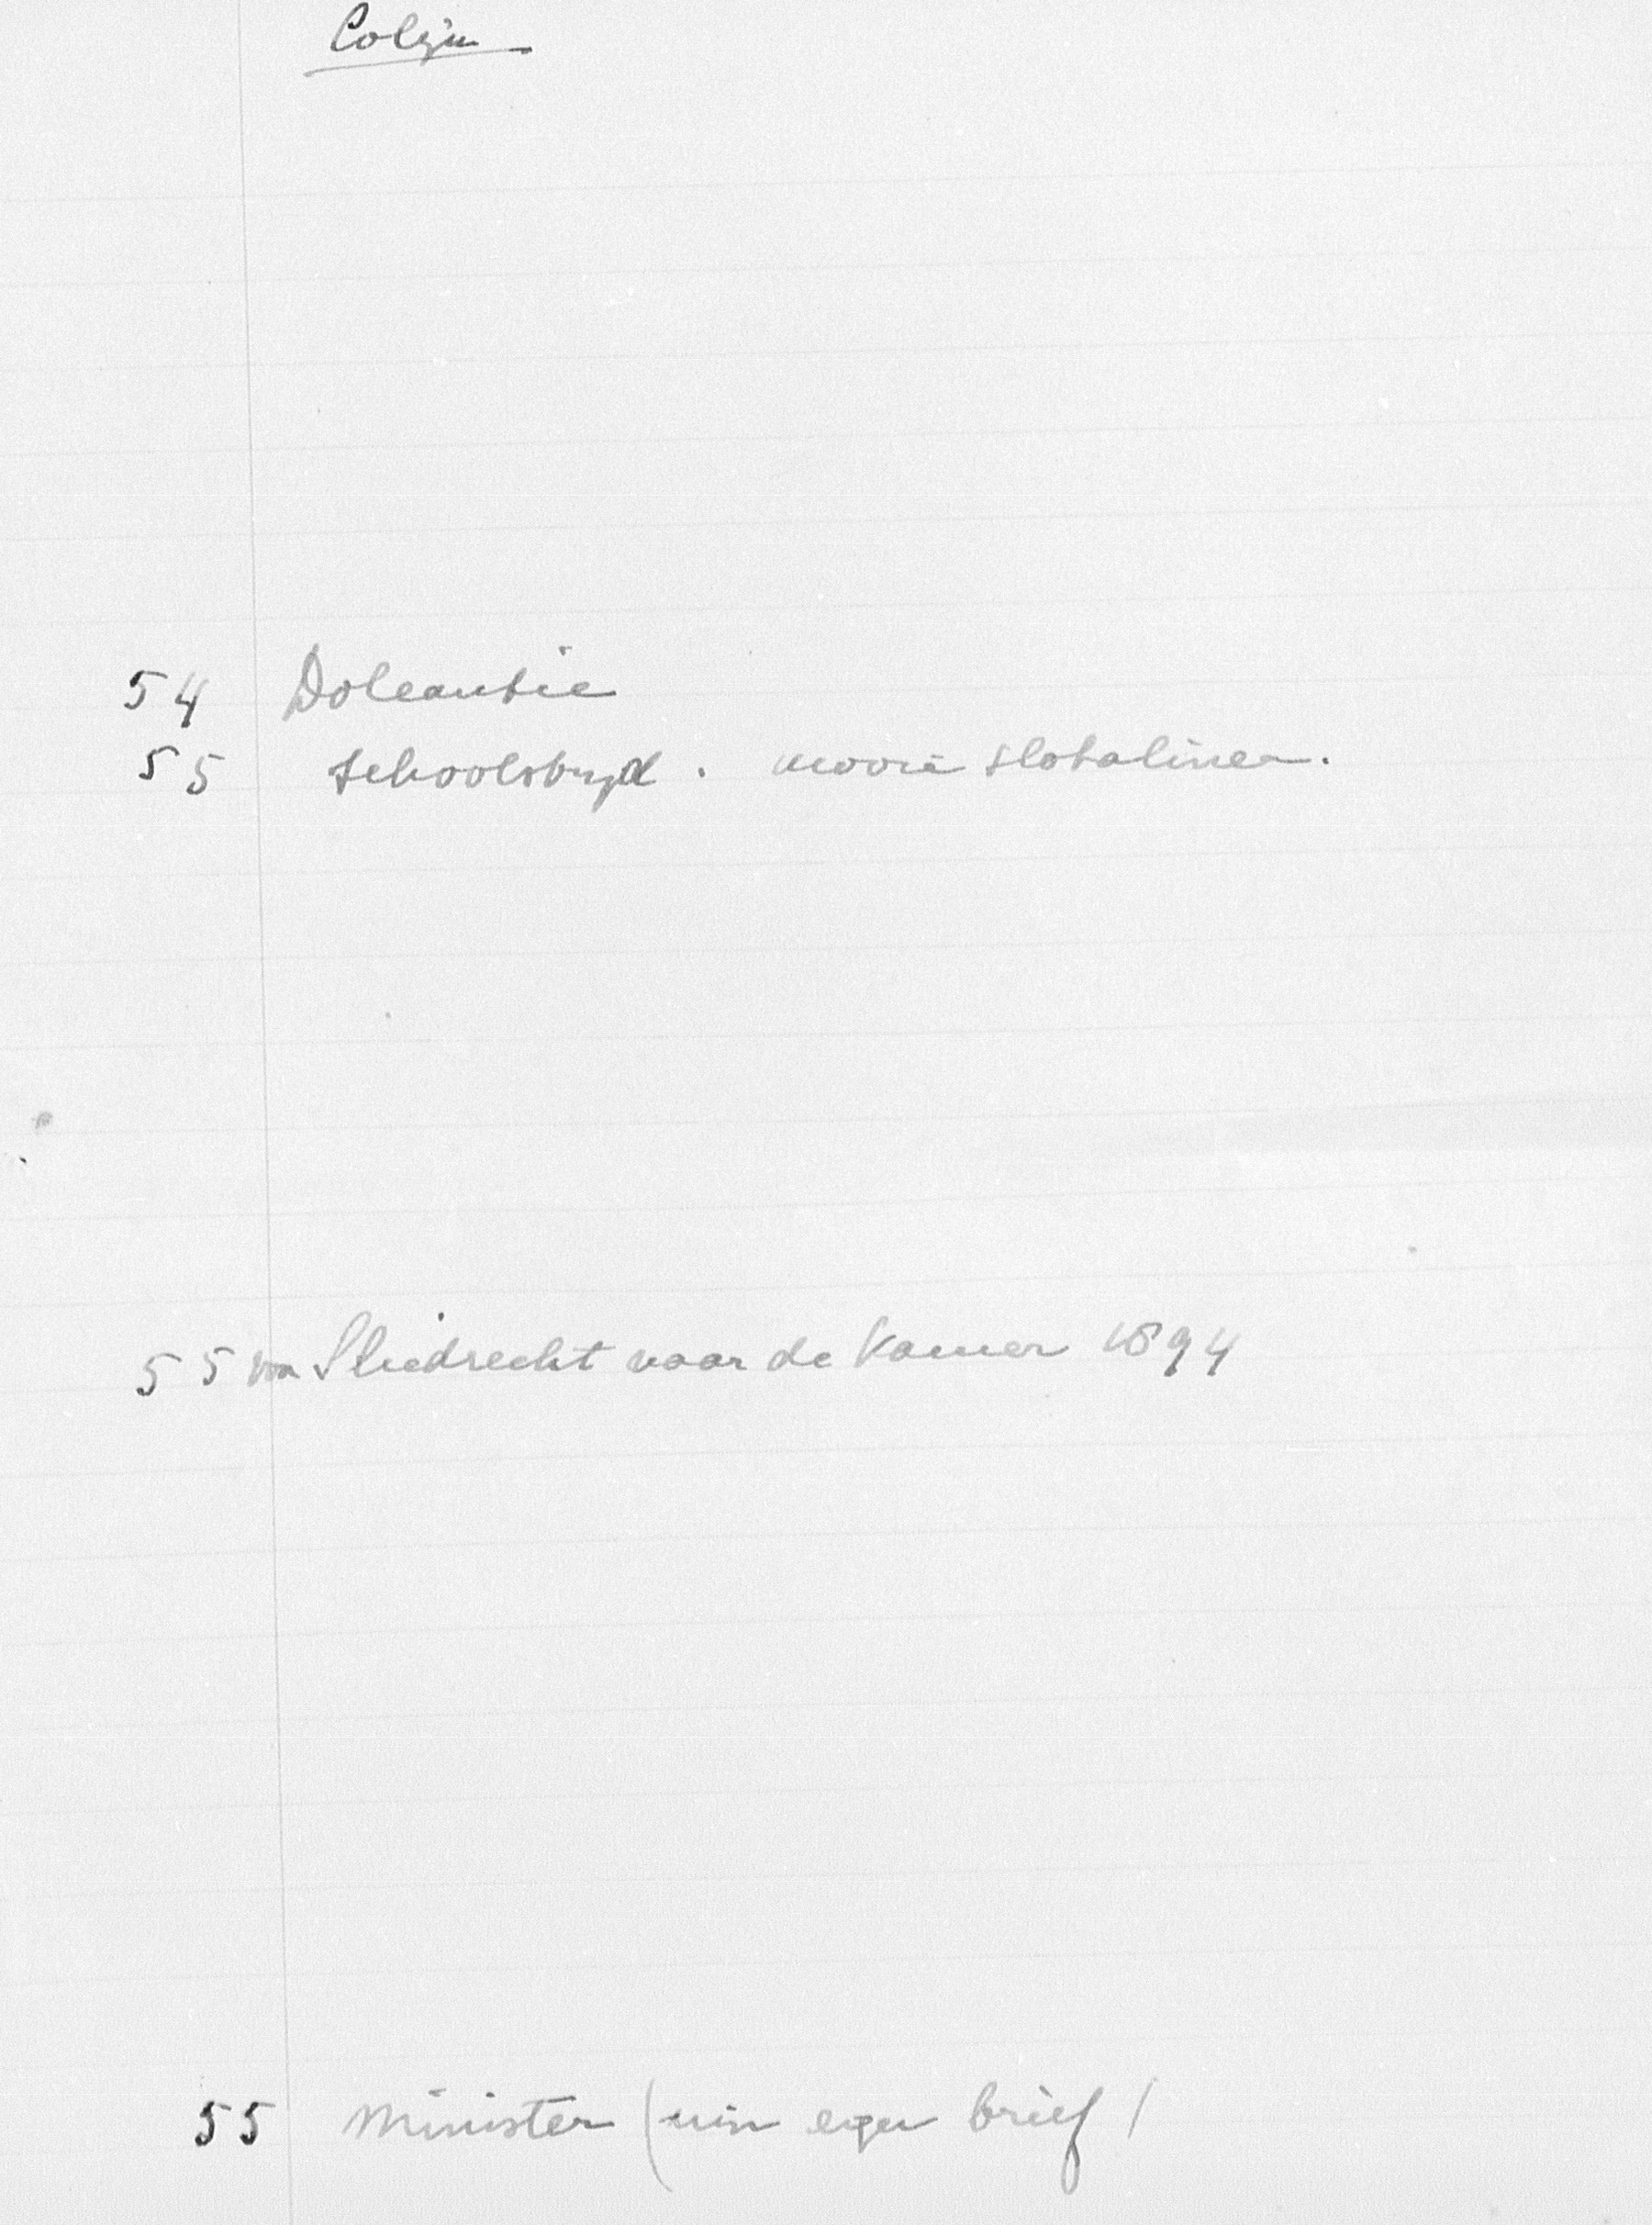 Colijn
54 Doleantie
55 schoolstryd. mooie slotalinea.
55 van Sliedrecht voor de Kamer 1894
55 minister (mijn eigen brief)